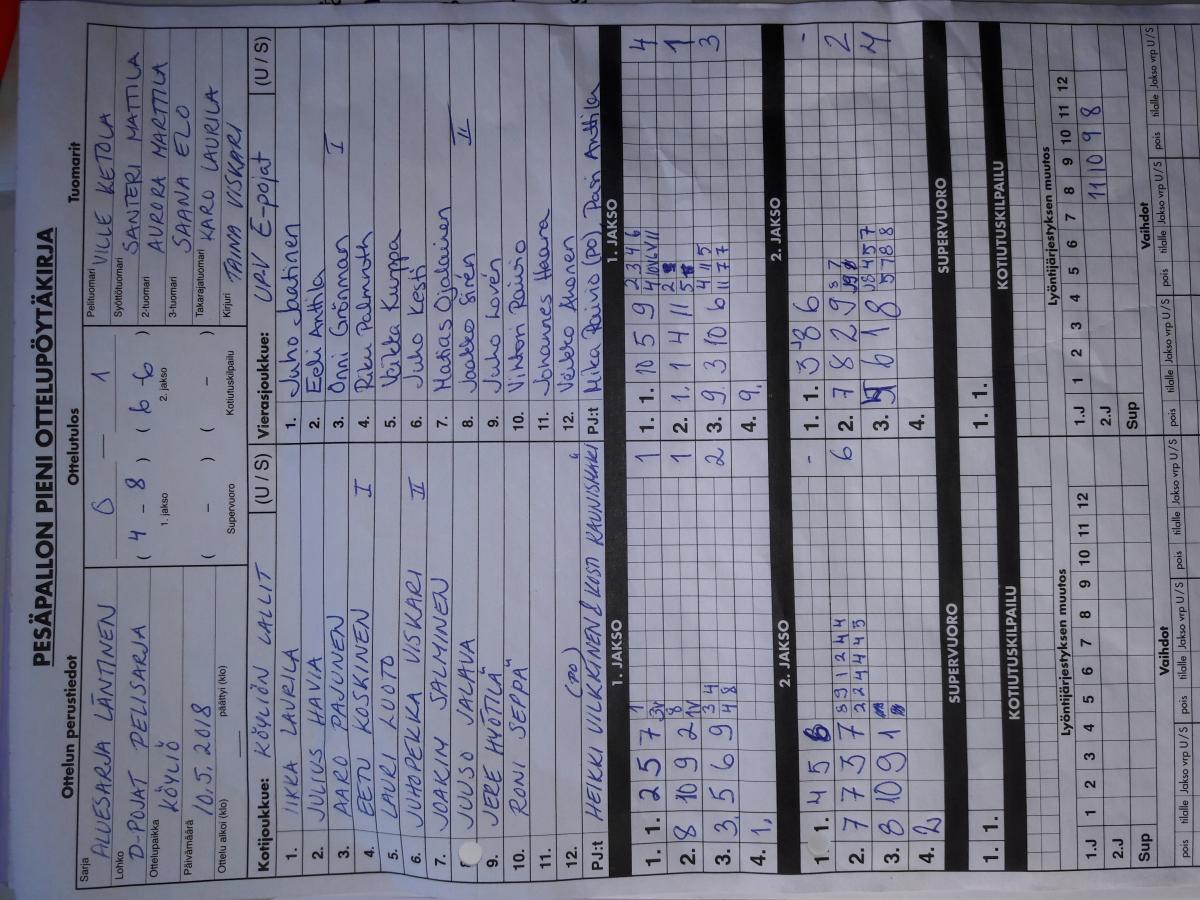 PESÄPALLON PIENI OTTELUPÖYTÄKIRJA
Ottelun perustiedot
Sarja ALUESARJA LÄNTINEN
Lohko D-POJAT PELISARJA
Ottelupaikka KÖYLIÖ
Päivämäärä 10.5.2018
Ottelu alkoi (klo) päättyi (klo)
Ottelutulos
0 — 1
( 4 - 8 ) ( 6 - 6 )
1. jakso 2. jakso
( - ) ( - )
Supervuoro Kotiutuskilpailu
Tuomarit
Pelituomari VILLE KETOLA
Syöttötuomari SANTERI MATTILA
2-tuomari AURORA MARTTILA
3-tuomari SAANA ELO
Takarajatuomari KARO LAURILA
Kirjuri TAINA VISKARI
Kotijoukkue: KÖYLIÖN LALLIT (U / S)
1. IIKKA LAURILA
2. JULIUS HAVIA
3. AARO PAJUNEN
4. EETU KOSKINEN I
5. LAURI LUOTO
6. JUHOPEKKA VISKARI II
7. JOAKIM SALMINEN
8. JUUSO JALAVA
9. JERE HYÖTILÄ
10. RONI SEPPÄ
11.
12. (PO)
PJ:t HEIKKI VILKKINEN & KOSTI KAUNISMÄKI
Vierasjoukkue: URV E-pojat (U / S)
1. Juho Jaatinen
2. Eeli Anttila
3. Onni Grönman I
4. Riku Palmroth
5. Veikka Kumppa
6. Juho Kesti
7. Matias Ojalainen
8. Jaakko Sirén II
9. Juho Lovén
10. Vihtori Raivio
11. Johannes Haara
12. Veikko Ahonen
PJ:t Mika Raivio (po), Pasi Anttila
1. JAKSO
1. 1. 2 5 7 1
2. 8 10 9 2 1
3. 3. 5 6 9 2
4. 1.
1. JAKSO
1. 1. 10 5 9 4
2. 1. 1 4 11 1
3. 9. 3 10 6 3
4. 9.
2. JAKSO
1. 1. 4 5 6 -
2. 7 7 3 7 6
3. 8 10 9 1
4. 2
2. JAKSO
1. 1. 3 8 6 -
2. 7 8 2 9 2
3. 6 1 8 4
4.
SUPERVUORO
1. 1.
SUPERVUORO
1. 1.
KOTIUTUSKILPAILU
KOTIUTUSKILPAILU
Lyöntijärjestyksen muutos
1.J 1 2 3 4 5 6 7 8 9 10 11 12
2.J
Sup
Lyöntijärjestyksen muutos
1.J 1 2 3 4 5 6 7 8 9 10 11 12
2.J 11 10 9 8
Sup
Vaihdot
pois tilalle Jakso vrp U/S pois tilalle Jakso vrp U/S pois tilalle Jakso vrp U/S
Vaihdot
pois tilalle Jakso vrp U/S pois tilalle Jakso vrp U/S pois tilalle Jakso vrp U/S